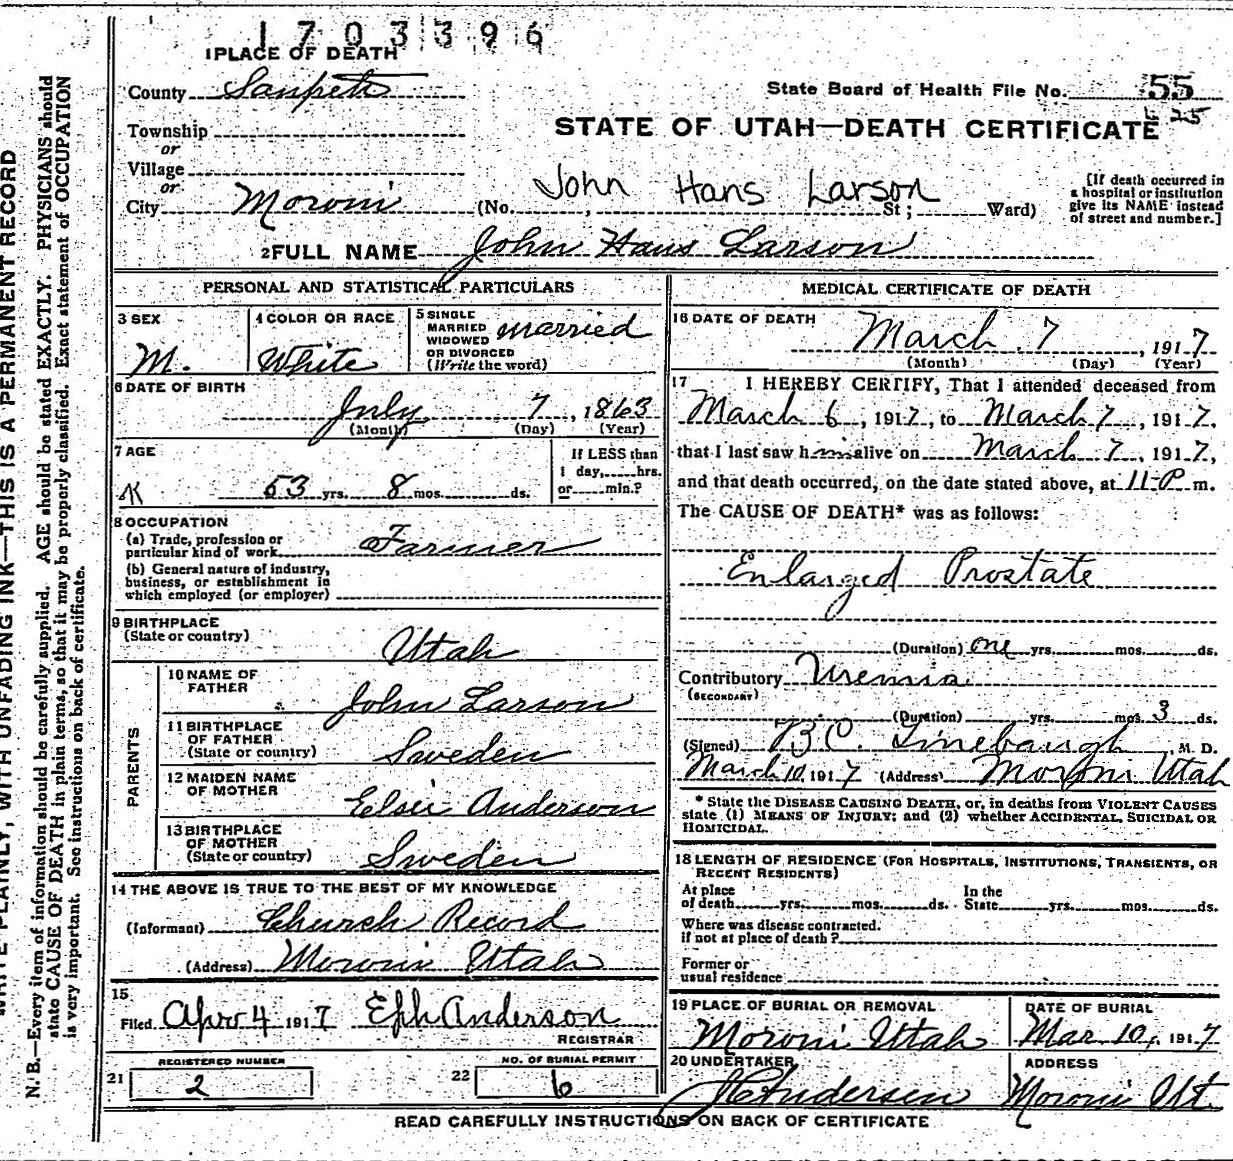 1703396
1 PLACE OF DEATH
County Sanpete
State Board of Health File No. 55
25
Township
or
STATE OF UTAH—DEATH CERTIFICATE
Village
or
City Moroni (No. , John Hans Larson St ; Ward)
[If death occurred in
a hospital or institution
give its NAME instead
of street and number.]
2 FULL NAME John Hans Larson
PERSONAL AND STATISTICAL PARTICULARS
3 SEX M.
4 COLOR OR RACE White
5 SINGLE
MARRIED
WIDOWED
OR DIVORCED
(Write the word)
married
6 DATE OF BIRTH
July 7, 1863
(Month) (Day) (Year)
7 AGE
53 yrs. 8 mos. ds.
If LESS than
1 day, hrs.
or min.?
8 OCCUPATION
(a) Trade, profession or
particular kind of work Farmer
(b) General nature of industry,
business, or establishment in
which employed (or employer)
9 BIRTHPLACE
(State or country)
Utah
PARENTS
10 NAME OF
FATHER John Larson
11 BIRTHPLACE
OF FATHER
(State or country) Sweden
12 MAIDEN NAME
OF MOTHER Elsie Anderson
13 BIRTHPLACE
OF MOTHER
(State or country) Sweden
14 THE ABOVE IS TRUE TO THE BEST OF MY KNOWLEDGE
(Informant) Church Record
(Address) Moroni Utah
15
Filed Apr 4 1917 Eph Anderson
REGISTRAR
REGISTERED NUMBER
21 2
NO. OF BURIAL PERMIT
22 6
MEDICAL CERTIFICATE OF DEATH
16 DATE OF DEATH
March 7, 1917
(Month) (Day) (Year)
17 I HEREBY CERTIFY, That I attended deceased from
March 6, 1917, to March 7, 1917,
that I last saw him alive on March 7, 1917,
and that death occurred, on the date stated above, at 11-P m.
The CAUSE OF DEATH* was as follows:
Enlarged Prostate
(Duration) one yrs. mos. ds.
Contributory Uremia
(SECONDARY)
(Duration) yrs. mos. 3 ds.
(Signed) B.C. Linebaugh, M. D.
March 10, 1917 (Address) Moroni Utah
* State the DISEASE CAUSING DEATH, or, in deaths from VIOLENT CAUSES
state (1) MEANS OF INJURY; and (2) whether ACCIDENTAL, SUICIDAL OR
HOMICIDAL.
18 LENGTH OF RESIDENCE (FOR HOSPITALS, INSTITUTIONS, TRANSIENTS, OR
RECENT RESIDENTS)
At place
of death yrs. mos. ds.
In the
State yrs. mos. ds.
Where was disease contracted.
if not at place of death?
Former or
usual residence
19 PLACE OF BURIAL OR REMOVAL
Moroni Utah
DATE OF BURIAL
Mar 10, 1917
20 UNDERTAKER
ADDRESS
Moroni Ut.
READ CAREFULLY INSTRUCTIONS ON BACK OF CERTIFICATE
WRITE PLAINLY, WITH UNFADING INK—THIS IS A PERMANENT RECORD
N. B.—Every item of information should be carefully supplied. AGE should be stated EXACTLY. PHYSICIANS should
state CAUSE OF DEATH in plain terms, so that it may be properly classified. Exact statement of OCCUPATION
is very important. See instructions on back of certificate.